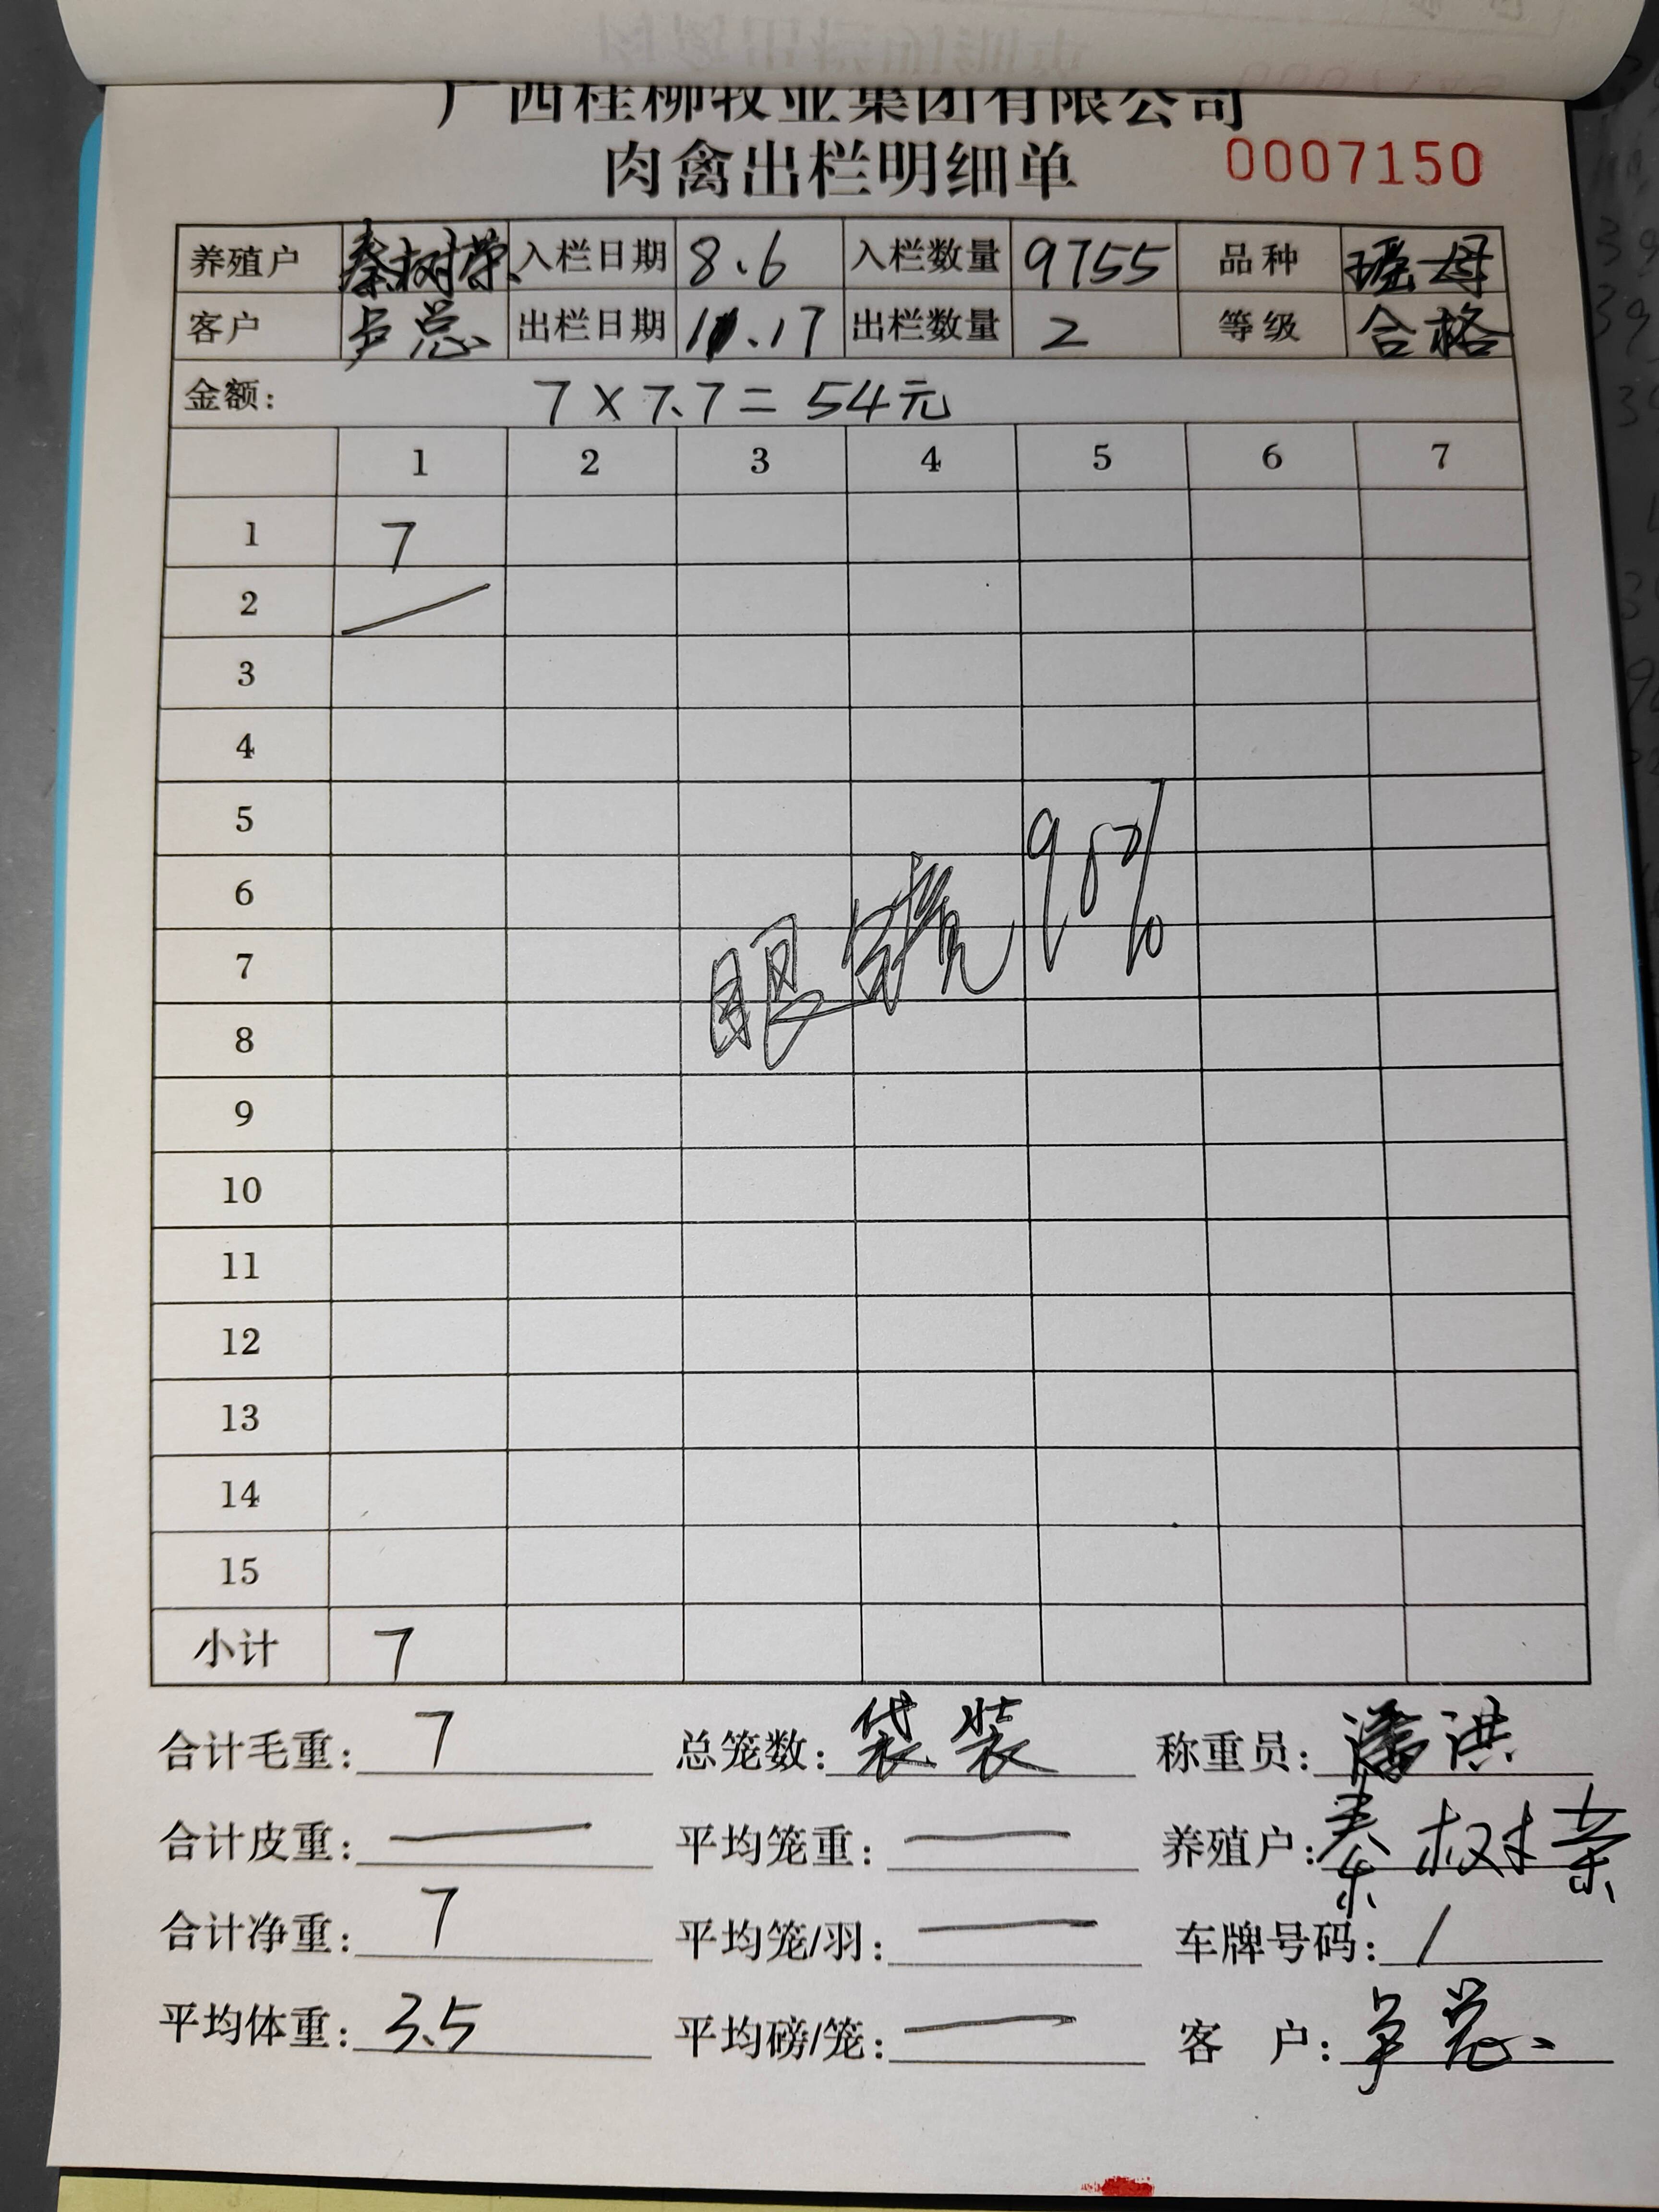 广西桂柳牧业集团有限公司
肉禽出栏明细单 0007150
养殖户 秦树荣 入栏日期 8.6 入栏数量 9755 品种 瑶母
客户 卢总 出栏日期 11.17 出栏数量 2 等级 合格
金额: 7×7.7=54元
1 2 3 4 5 6 7
1 7
2
3
4
5
6
7
8
9
10
11
12
13
14
15
小计 7
合计毛重: 7 总笼数: 袋装 称重员: 潘洪
合计皮重: — 平均笼重: — 养殖户: 秦树荣
合计净重: 7 平均笼/羽: — 车牌号码: /
平均体重: 3.5 平均磅/笼: — 客 户: